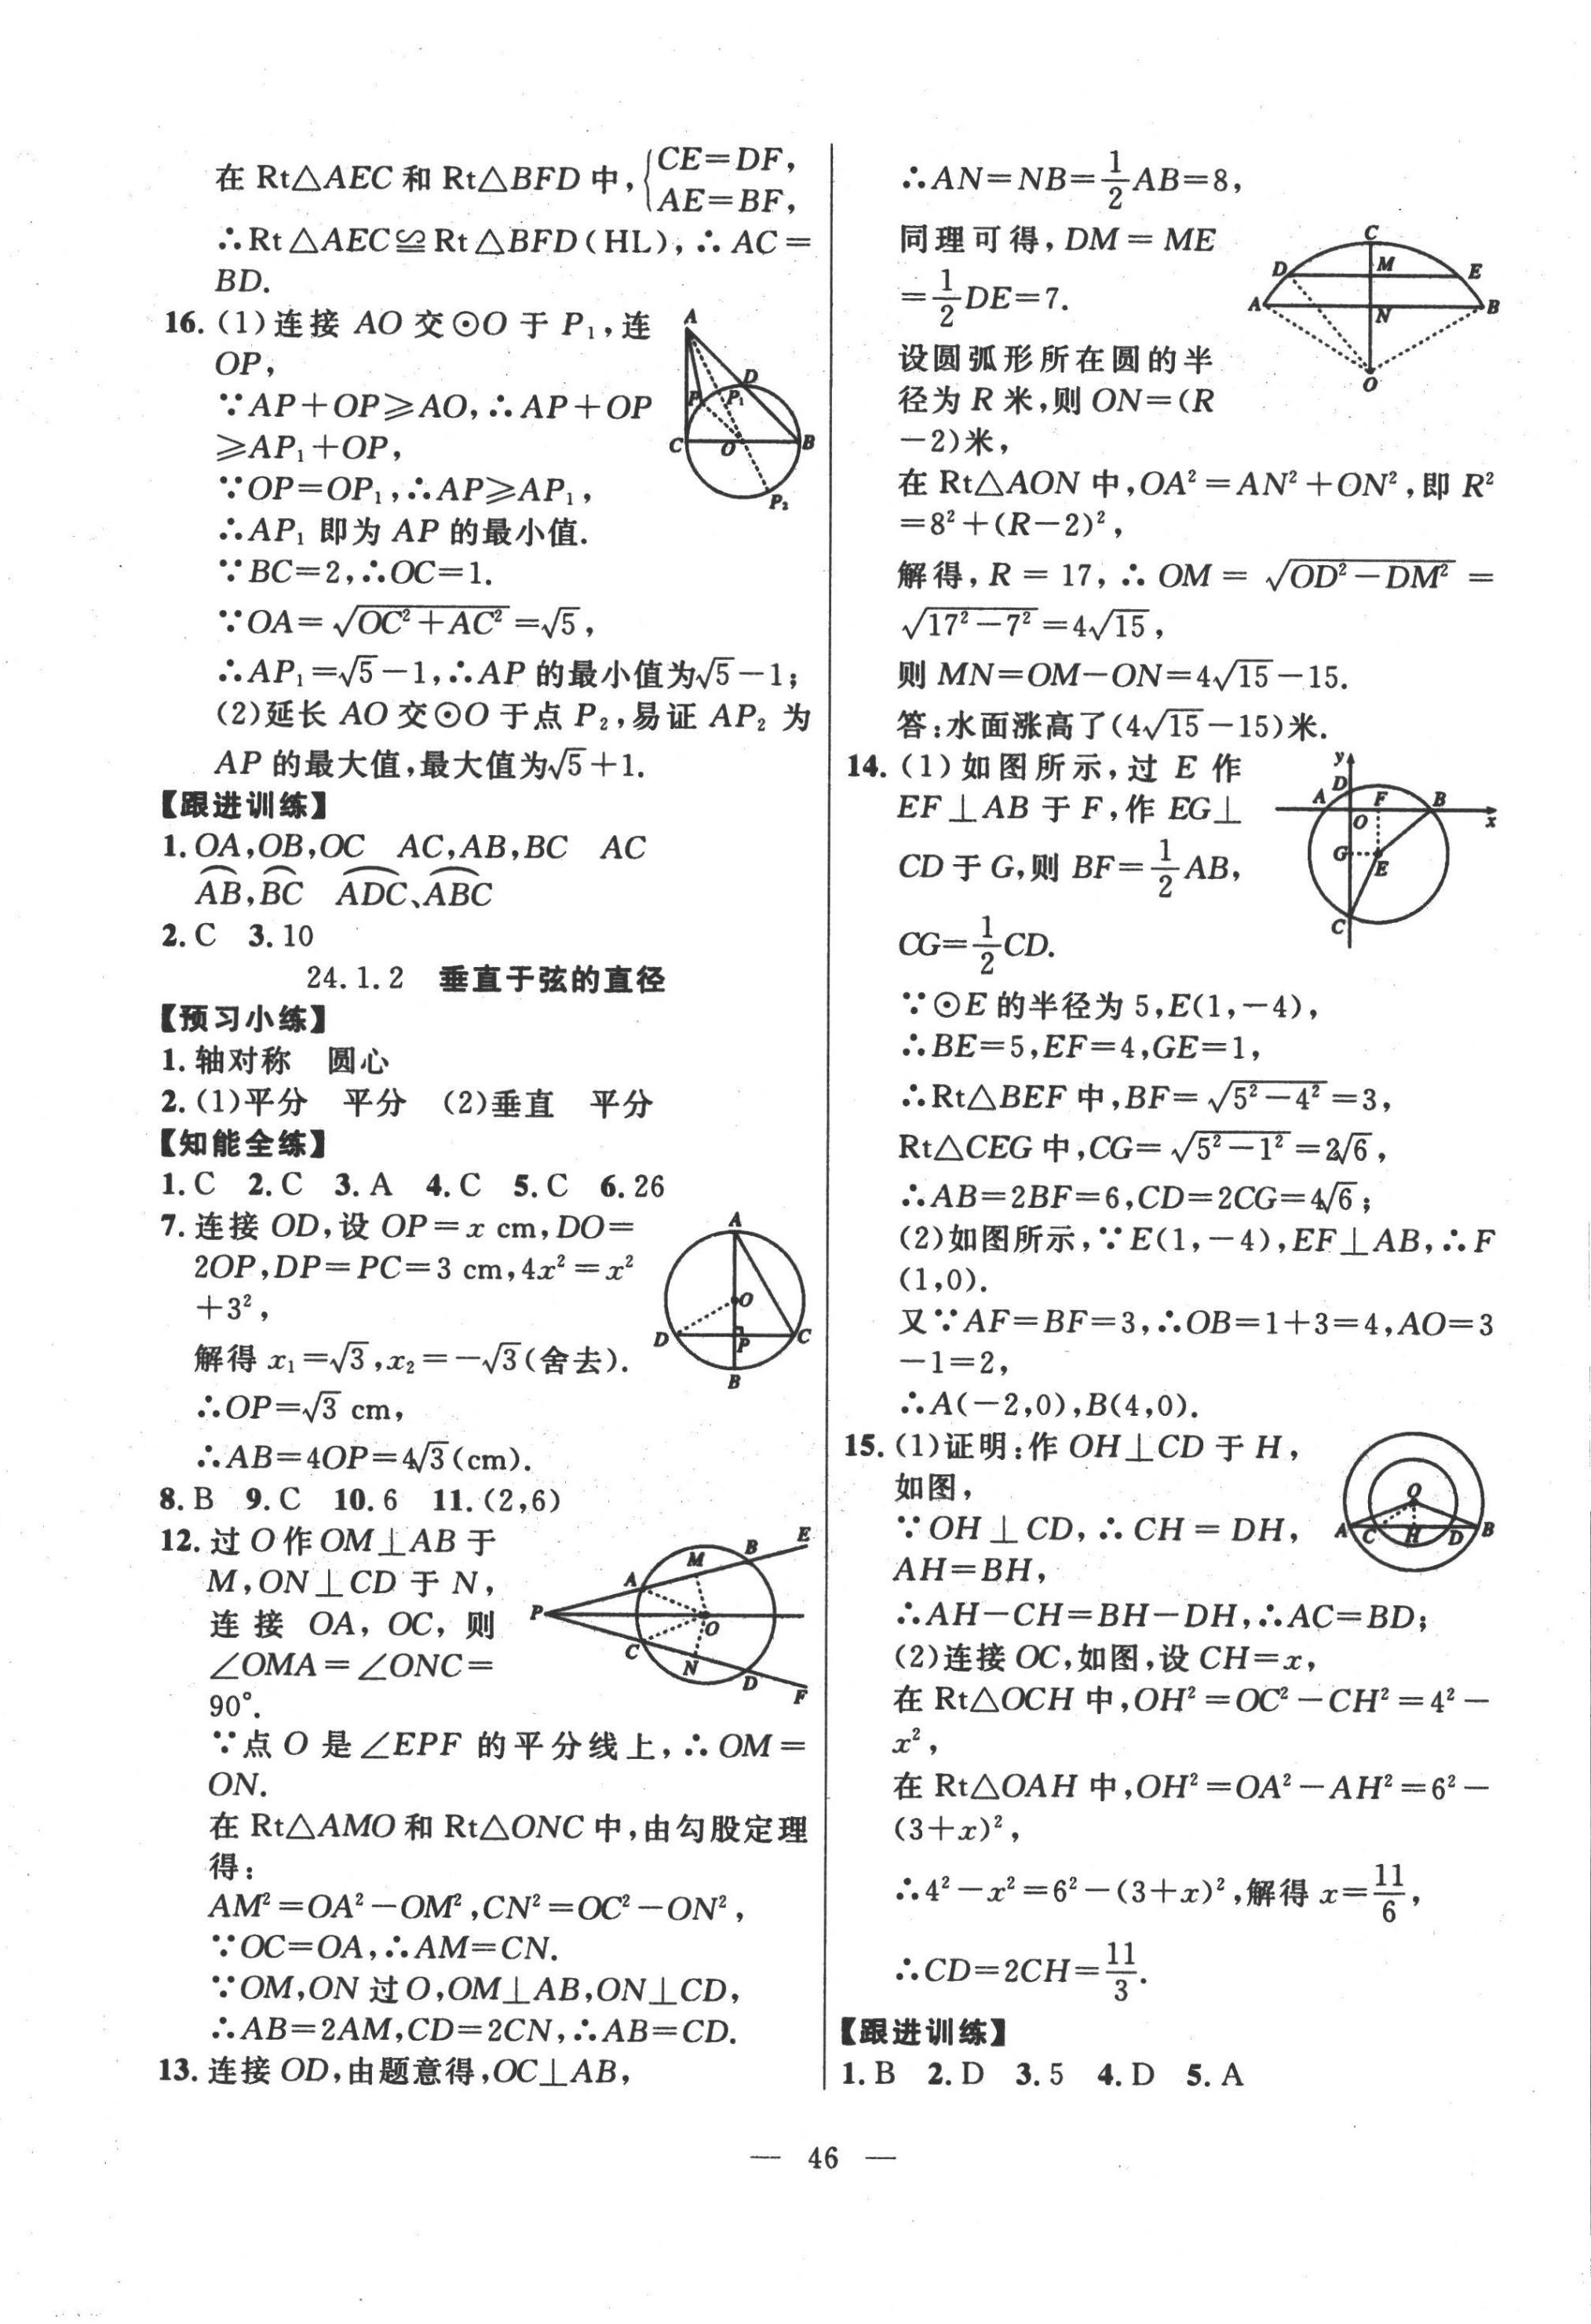 在 Rt△AEC 和 Rt△BFD 中,{CE=DF,
AE=BF,
∴Rt△AEC≌Rt△BFD(HL),∴AC=
BD.
16.(1)连接 AO 交⊙O 于 P₁,连
OP,
∵AP+OP≥AO,∴AP+OP
≥AP₁+OP,
∵OP=OP₁,∴AP≥AP₁,
∴AP₁ 即为 AP 的最小值.
∵BC=2,∴OC=1.
∵OA=√(OC²+AC²)=√5,
∴AP₁=√5-1,∴AP 的最小值为√5-1;
(2)延长 AO 交⊙O 于点 P₂,易证 AP₂ 为
AP 的最大值,最大值为√5+1.
A
D
P
P₁
C
O
B
P₂
【跟进训练】
1.OA,OB,OC AC,AB,BC AC
⌒AB,⌒BC ⌒ADC、⌒ABC
2.C 3.10
24.1.2 垂直于弦的直径
【预习小练】
1.轴对称 圆心
2.(1)平分 平分 (2)垂直 平分
【知能全练】
1.C 2.C 3.A 4.C 5.C 6.26
7.连接 OD,设 OP=x cm,DO=
2OP,DP=PC=3 cm,4x²=x²
+3²,
解得 x₁=√3,x₂=-√3(舍去).
∴OP=√3 cm,
∴AB=4OP=4√3(cm).
A
O
D
P
C
B
8.B 9.C 10.6 11.(2,6)
12.过 O 作 OM⊥AB 于
M,ON⊥CD 于 N,
连接 OA,OC,则
∠OMA=∠ONC=
90°.
E
B
M
A
P
O
C
N
D
F
∵点 O 是∠EPF 的平分线上,∴OM=
ON.
在 Rt△AMO 和 Rt△ONC 中,由勾股定理
得:
AM²=OA²-OM²,CN²=OC²-ON²,
∵OC=OA,∴AM=CN.
∵OM,ON 过 O,OM⊥AB,ON⊥CD,
∴AB=2AM,CD=2CN,∴AB=CD.
13.连接 OD,由题意得,OC⊥AB,
∴AN=NB=1/2AB=8,
同理可得,DM=ME
=1/2DE=7.
设圆弧形所在圆的半
径为 R 米,则 ON=(R
-2)米,
C
D
M
E
A
N
B
O
在 Rt△AON 中,OA²=AN²+ON²,即 R²
=8²+(R-2)²,
解得,R=17,∴OM=√(OD²-DM²)=
√(17²-7²)=4√15,
则 MN=OM-ON=4√15-15.
答:水面涨高了(4√15-15)米.
14.(1)如图所示,过 E 作
EF⊥AB 于 F,作 EG⊥
CD 于 G,则 BF=1/2AB,
CG=1/2CD.
y
D
A
F
B
O
x
G
E
C
∵⊙E 的半径为 5,E(1,-4),
∴BE=5,EF=4,GE=1,
∴Rt△BEF 中,BF=√(5²-4²)=3,
Rt△CEG 中,CG=√(5²-1²)=2√6,
∴AB=2BF=6,CD=2CG=4√6;
(2)如图所示,∵E(1,-4),EF⊥AB,∴F
(1,0).
又∵AF=BF=3,∴OB=1+3=4,AO=3
-1=2,
∴A(-2,0),B(4,0).
15.(1)证明:作 OH⊥CD 于 H,
如图,
∵OH⊥CD,∴CH=DH,
AH=BH,
∴AH-CH=BH-DH,∴AC=BD;
O
A
C
H
D
B
(2)连接 OC,如图,设 CH=x,
在 Rt△OCH 中,OH²=OC²-CH²=4²-
x²,
在 Rt△OAH 中,OH²=OA²-AH²=6²-
(3+x)²,
∴4²-x²=6²-(3+x)²,解得 x=11/6,
∴CD=2CH=11/3.
【跟进训练】
1.B 2.D 3.5 4.D 5.A
— 46 —